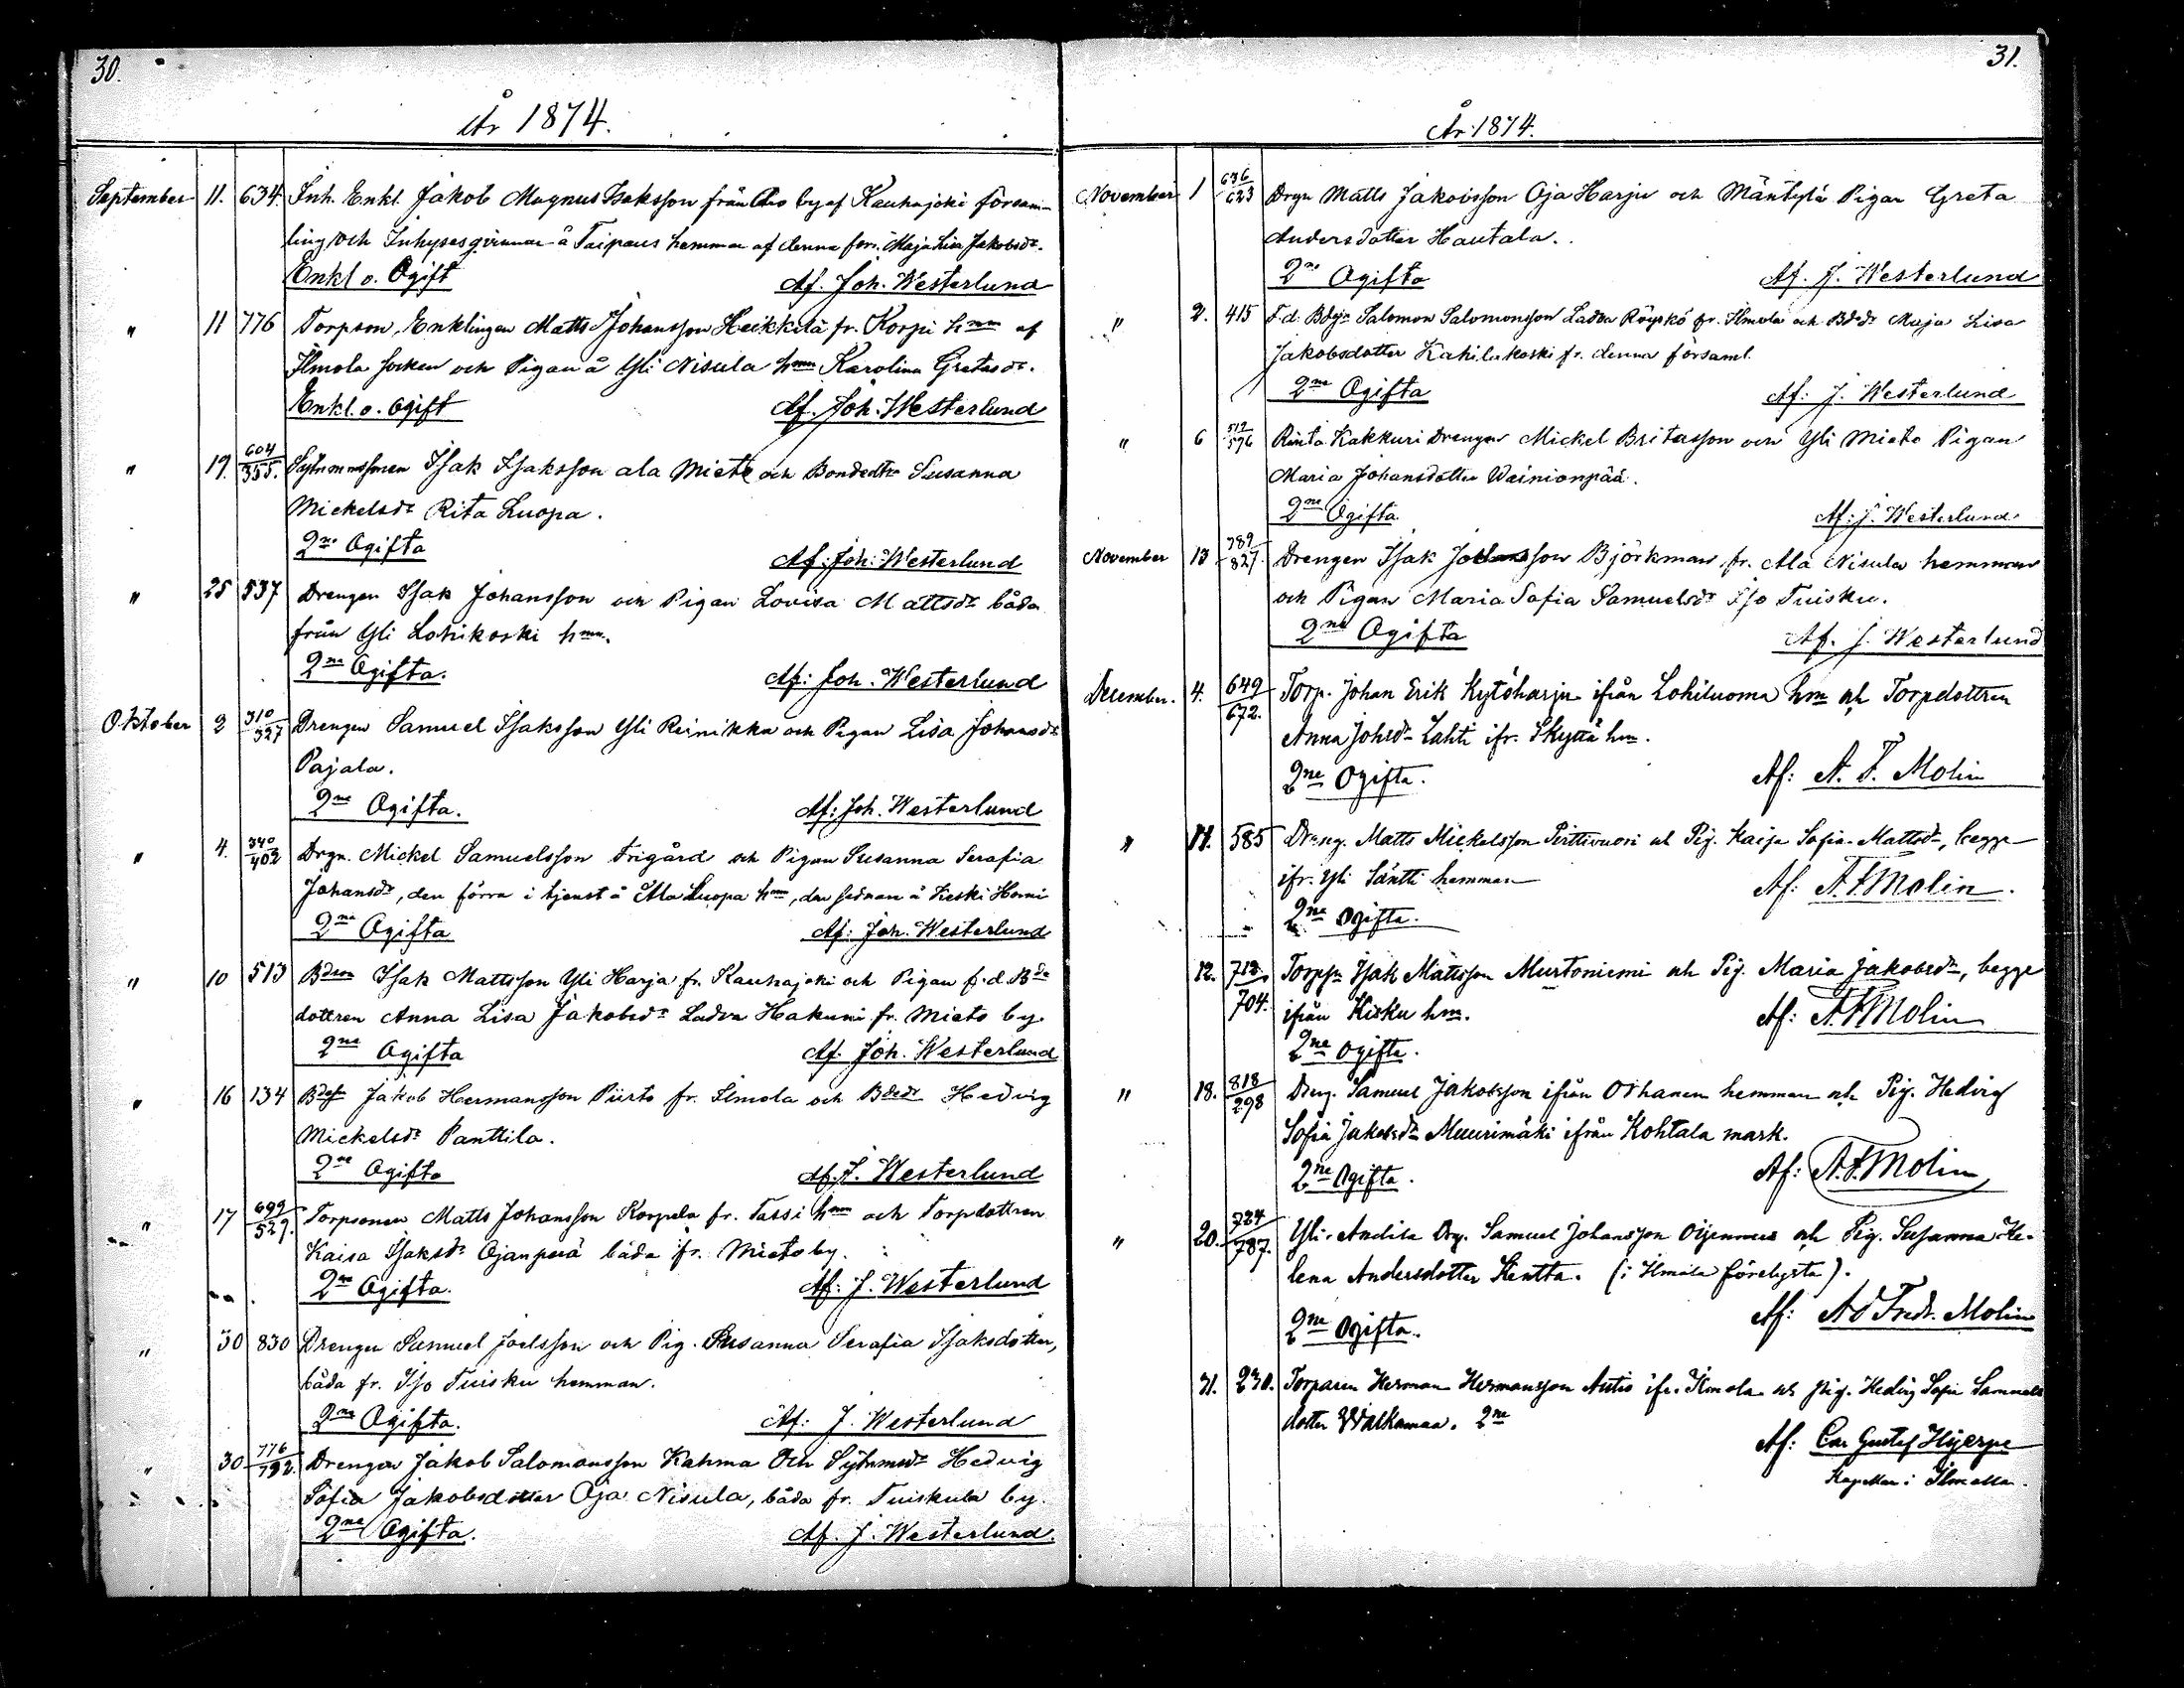 30.
År 1874.
September 11. 634. Inh. Enkl. Jakob Magnus Isaksson från by af Kauhajoki försam-
ling och Inhysesqvinnan å Taipaus hemman af denna förs. Maja Lisa Jakobsdr.
Enkl. o. Ogift Af. Joh. Westerlund
" 11 776 Torpson, Enklingen Matts Johansson Heikkilä fr. Korpi hmn af
Ilmola socken och Pigan å Yli Nisula hmn Karolina Gretasdr.
Enkl. o. ogift Af. Joh. Westerlund
" 19. 604/355. Isak Isaksson ala Mieto och Bondedtr Susanna
Mickelsdr Rita Luopa.
2ne Ogifta Af: Joh: Westerlund
" 25 537 Drengen Isak Johansson och Pigan Lovisa Mattsdr båda
från Yli Lohikoski hmn.
2ne Ogifta. Af: Joh. Westerlund
Oktober 2 310/327 Drengen Samuel Isaksson Yli Reinikka och Pigan Lisa Johansdr
Pajala.
2ne Ogifta. Af: Joh. Westerlund
" 4. 340/402 Drgn. Mickel Samuelsson Frigård och Pigan Susanna Serafia
Johansdr, den förra i tjenst å Ala Luopa hmn, den sednare å Keski Homi
2ne Ogifta Af: Joh. Westerlund
" 10 513 Bdson Isak Mattsson Yli Harja fr. Kauhajoki och Pigan f.d. Bde
dottren Anna Lisa Jakobsdr Ladva Hakuni fr. Mieto by.
2ne Ogifta Af. Joh. Westerlund
" 16 134 Bdesn Jakob Hermansson Piirto fr. Ilmola och Bdedr Hedvig
Mickelsdr Panttila.
2ne Ogifta Af. J. Westerlund
" 17 699/529. Torpsonen Matts Johansson Korpela fr. Tassi hmn och Torpdottren
Kaisa Isaksdr Ojanperä båda fr. Mieto by.
2ne Ogifta. Af. J. Westerlund
" 30 830 Drengen Samuel Joelsson och Pig. Susanna Serafia Isaksdotter,
båda fr. Iso Tuisku hemman.
2ne Ogifta. Af: J. Westerlund
" 30 776/792. Drengen Jakob Salomonsson Kahma Och Sytnmsdr Hedvig
Sofia Jakobsdotter Oja Nisula, båda fr. Tuiskula by.
2ne Ogifta. Af. J. Westerlund.
31.
År 1874.
November 1 636/623 Drgn Matts Jakobsson Oja Harju och Mäntylä Pigan Greta
Andersdotter Hautala.
2ne Ogifta Af. J. Westerlund
" 2. 415 F.d. Bdesn Salomon Salomonsson Ladva Röyskö fr. Ilmola och Bdedr Maja Lisa
Jakobsdotter Kahilakoski fr. denna församl.
2ne Ogifta Af: J. Westerlund
" 6 512/576 Rinta Kakkuri Drengen Mickel Britasson och Yli Mieto Pigan
Maria Johansdotter Wäinionpää.
2ne Ogifta. Af: J. Westerlund
November 13 789/827. Drengen Isak Johansson Björkman fr. Ala Nisula hemman
och Pigan Maria Sofia Samuelsdr Iso Tuisku.
2ne Ogifta Af. J. Westerlund
December. 4. 649/672. Torp. Johan Erik Kytöharju ifrån Lohiluoma hm och Torpdottren
Anna Johsdr Lahti ifr. Skyttä hm.
2ne Ogifta. Af: A. F. Molin
" 11. 585 Dreng. Matts Mickelsson Perttivuori och Pig. Kaisa Sofia Mattsdr, begge
ifr. Yli Säntti hemman Af: A. F Molin.
2ne Ogifta.
12. 712/704. Torpsn Isak Mattsson Murtoniemi och Pig. Maria Jakobsdr, begge
ifrån Kisku hm. Af: A. F Molin
2ne ogifta.
" 18. 818/298 Dreng. Samuel Jakobsson ifrån Orhanen hemman och Pig. Hedvig
Sofia Jakobsdr Muurimäki ifrån Kohtala mark.
2ne Ogifta. Af: A. F. Molin
" 20. 724/787. Yli-Andila Drg. Samuel Johansson och Pig. Susanna He-
lena Andersdotter Kentta. (i Ilmola förelysta).
2ne Ogifta. Af: Ad Fredr. Molin
31. 230. Torparen Herman Hermansson Autio ifr. Ilmola och pig. Hedvig Sofia Samuels
dotter Walkamaa. 2ne
Af: Car Gustaf Hjerpe
Kapellan i Ilmola.